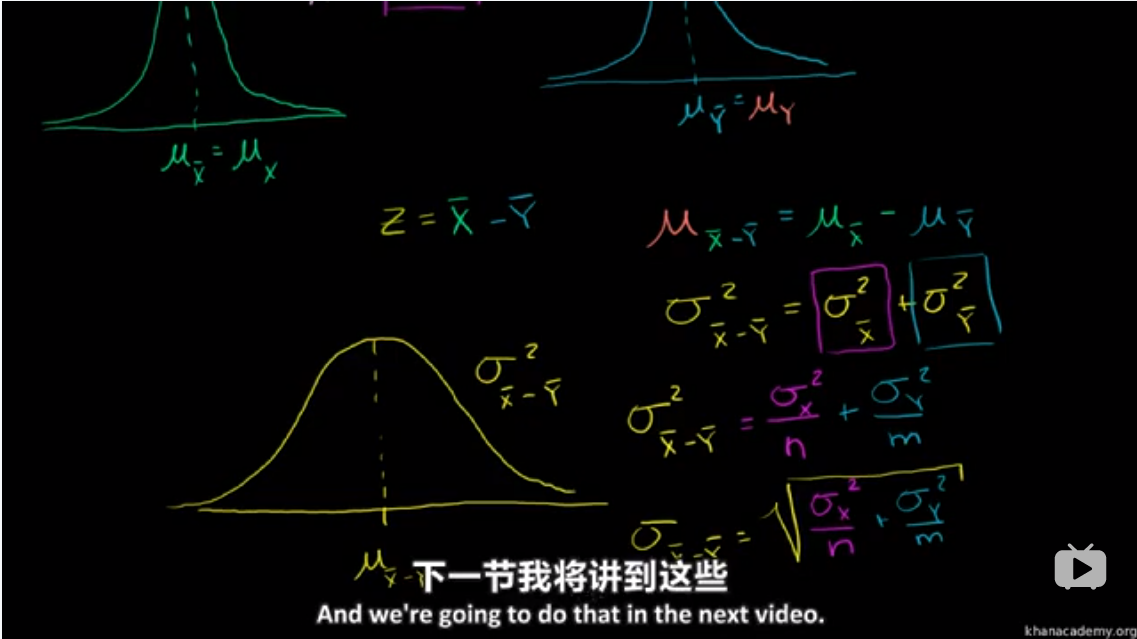 μ_Ȳ = μ_Y
μ_X̄ = μ_X
Z = X̄ - Ȳ
μ_X̄-Ȳ = μ_X̄ - μ_Ȳ
σ²_X̄-Ȳ = σ²_X̄ + σ²_Ȳ
σ²_X̄-Ȳ
σ²_X̄-Ȳ = σ_X²/n + σ_Y²/m
σ_X̄-Ȳ = √(σ_X²/n + σ_Y²/m)
下一节我将讲到这些
And we're going to do that in the next video.
khanacademy.org